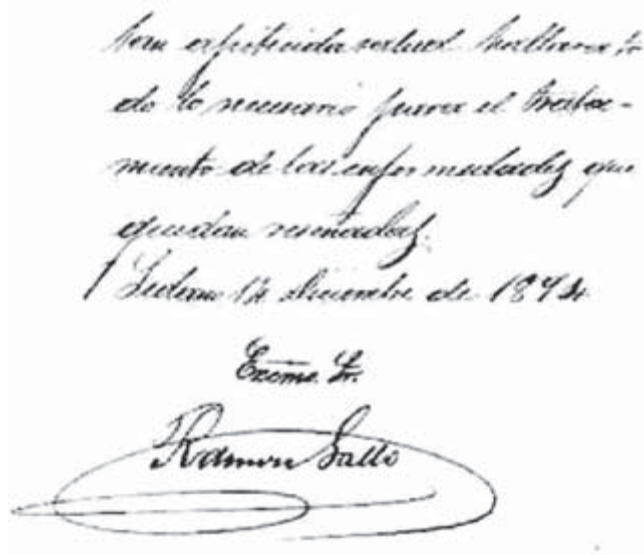 tan apetecida salud hallara to
do lo necesario para el trata-
miento de las enfermedades que
quedan reseñadas.
14 Diciembre de 1894
Excmo. Sr.
Ramon Gallo